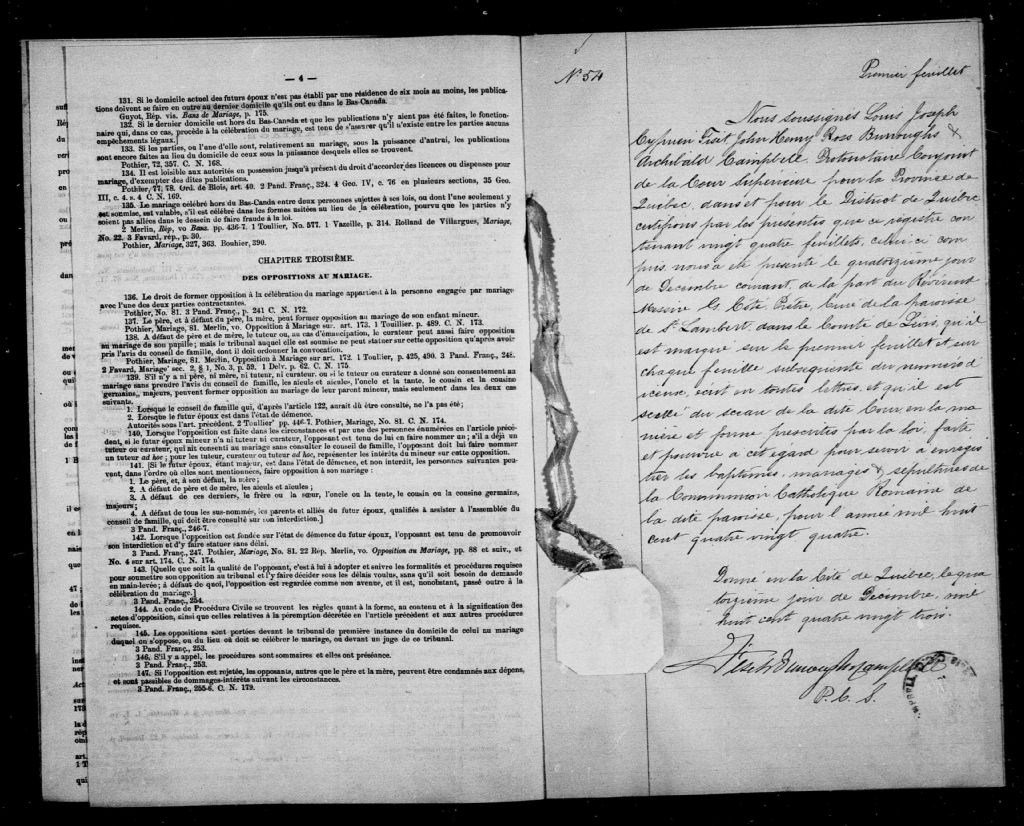 — 4 —
131. Si le domicile actuel des futurs époux n'est pas établi par une résidence de six mois au moins, les publica-
tions doivent se faire en outre au dernier domicile qu'ils ont eu dans le Bas-Canada.
Guyot, Rép. vis. Bans de Mariage, p. 175.
132. Si le dernier domicile est hors du Bas-Canada et que les publications n'y aient pas été faites, le fonction-
naire qui, dans ce cas, procède à la célébration du mariage, est tenu de s'assurer qu'il n'existe entre les parties aucuns
empêchements légaux.]
133. Si les parties, ou l'une d'elles, sont, relativement au mariage, sous la puissance d'autrui, les publications
sont encore faites au lieu du domicile de ceux sous la puissance desquels elles se trouvent.
Pothier, 72, 357. C. N. 168.
134. Il est loisible aux autorités en possession jusqu'à présent du droit d'accorder des licences ou dispenses pour
mariage, d'exempter des dites publications.
Pothier, 77, 78. Ord. de Blois, art. 40. 2 Pand. Franç., 324. 4 Geo. IV, c. 76 en plusieurs sections, 35 Geo.
III, c. 4. s. 4 C. N. 169.
135. Le mariage célébré hors du Bas-Canada entre deux personnes sujettes à ses lois, ou dont l'une seulement y
est soumise, est valable, s'il est célébré dans les formes usitées au lieu de la célébration, pourvu que les parties n'y
soient pas allées dans le dessein de faire fraude à la loi.
2 Merlin, Rép, vo Bans. pp. 436-7. 1 Toullier, No. 577. 1 Vazeille, p. 314. Rolland de Villargues, Mariage,
No. 22. 3 Favard, rép., p. 30.
Pothier, Mariage, 327, 363. Bouhier, 390.
CHAPITRE TROISIÈME.
DES OPPOSITIONS AU MARIAGE.
136. Le droit de former opposition à la célébration du mariage appartient à la personne engagée par mariage
avec l'une des deux parties contractantes.
Pothier, No. 81. 3 Pand. Franç., p. 241 C. N. 172.
137. Le père, et à défaut du père, la mère, peut former opposition au mariage de son enfant mineur.
Pothier, Mariage, 81. Merlin, vo. Opposition à Mariage sur. art. 173. 1 Toullier p. 489. C. N. 173.
138. A défaut de père et de mère, le tuteur ou, au cas d'émancipation, le curateur peut aussi faire opposition
au mariage de son pupille; mais le tribunal auquel elle est soumise ne peut statuer sur cette opposition qu'après avoir
pris l'avis du conseil de famille, dont il doit ordonner la convocation.
Pothier, Mariage, 81. Merlin, Opposition à Mariage sur art. 172. 1 Toullier, p. 425, 490. 3 Pand. Franç., 248.
2 Favard, Mariage sec. 2, § 1, No. 3, p. 59. 1 Delv. p. 62. C. N. 175.
139. S'il n'y a ni père, ni mère, ni tuteur, ni curateur, ou si le tuteur ou curateur a donné son consentement au
mariage sans prendre l'avis du conseil de famille, les aïeuls et aïeules, l'oncle et la tante, le cousin et la cousine
germains, majeurs, peuvent former opposition au mariage de leur parent mineur, mais seulement dans les deux cas
suivants.
1. Lorsque le conseil de famille qui, d'après l'article 122, aurait dû être consulté, ne l'a pas été;
2. Lorsque le futur époux est dans l'état de démence.
Autorités sous l'art. précédent. 2 Toullier pp. 446-7. Pothier, Mariage, No. 81. C. N. 174.
140. Lorsque l'opposition est faite dans les circonstances et par une des personnes énumérées en l'article précé-
dent, si le futur époux mineur n'a ni tuteur ni curateur, l'opposant est tenu de lui en faire nommer un; s'il a déjà un
un tuteur ou curateur, qui ait consenti au mariage sans consulter le conseil de famille, l'opposant doit lui faire nommer
un tuteur ad hoc; pour les tuteur, curateur ou tuteur ad hoc, représenter les intérêts du mineur sur cette opposition.
141. [Si le futur époux, étant majeur, est dans l'état de démence, et non interdit, les personnes suivantes peu-
vent, dans l'ordre où elles sont mentionnées, faire opposition à son mariage :
1. Le père, et, à son défaut, la mère;
2. A défaut de père et de mère, les aïeuls et aïeules;
3. A défaut de ces derniers, le frère ou la sœur, l'oncle ou la tante, le cousin ou la cousine germains,
majeurs;
4. A défaut de tous les sus-nommés, les parents et alliés du futur époux, qualifiés à assister à l'assemblée du
conseil de famille, qui doit être consulté sur son interdiction.]
3 Pand. Franç., 246-7.
142. Lorsque l'opposition est fondée sur l'état de démence du futur époux, l'opposant est tenu de promouvoir
son interdiction et d'y faire statuer sans délai.
3 Pand. Franç., 247. Pothier, Mariage, No. 81. 22 Rép. Merlin, vo. Opposition au Mariage, pp. 88 et suiv., et
No. 4 sur art. 174. C. N. 174.
143. [Quelle que soit la qualité de l'opposant, c'est à lui à adopter et suivre les formalités et procédures requises
pour soumettre son opposition au tribunal et l'y faire décider sous les délais voulus, sans qu'il soit besoin de demande
en main-levée; à défaut de quoi, l'opposition est regardée comme non avenue, et il est, nonobstant, passé outre à la
célébration du mariage.]
3 Pand. Franç., 254.
144. Au code de Procédure Civile se trouvent les règles quant à la forme, au contenu et à la signification des
actes d'opposition, ainsi que celles relatives à la péremption décrétée en l'article précédent et aux autres procédures
requises.
145. Les oppositions sont portées devant le tribunal de première instance du domicile de celui au mariage
duquel on s'oppose, ou du lieu où doit se célébrer le mariage, ou devant un juge de ce tribunal.
3 Pand. Franç., 253.
146. S'il y a appel, les procédures sont sommaires et elles ont préséance.
3 Pand. Franç., 253.
147. Si l'opposition est rejetée, les opposants, autres que le père et la mère, peuvent être condamnés aux dépens,
et sont passibles de dommages-intérêts suivant les circonstances.
3 Pand. Franç., 255-6. C. N. 179.
No. 54
Premier feuillet
Nous soussignés Louis Joseph
Cyprien Fiset, John Henry Ross Burroughs &
Archibald Campbell Protonotaire Conjoint
de la Cour Supérieure pour la Province de
Québec, dans et pour le District de Québec
certifions par les présentes que ce registre con
tenant vingt quatre feuillets, celui ci com
pris, nous a été présenté le quatorzième jour
de Décembre courant, de la part du Révérend
Messire G. Côté, Prêtre, Curé de la paroisse
de St. Lambert, dans le Comté de Lévis, qu'il
est marqué sur le premier feuillet et sur
chaque feuille subséquente du numéro d
icense, écrit en toutes lettres, et qu'il est
scellé du sceau de la dite Cour, en la ma
nière et forme prescrites par la loi, faite
et pourvue à cet égard pour servir à enregis
trer les baptêmes, mariages & sépultures de
la Communion Catholique Romaine de
la dite paroisse, pour l'année mil huit
cent quatre vingt quatre.
Donné en la Cité de Québec, le qua
torzième jour de Décembre, mil
huit cent quatre vingt trois.
Fiset Burroughs Campbell
P. C. S.